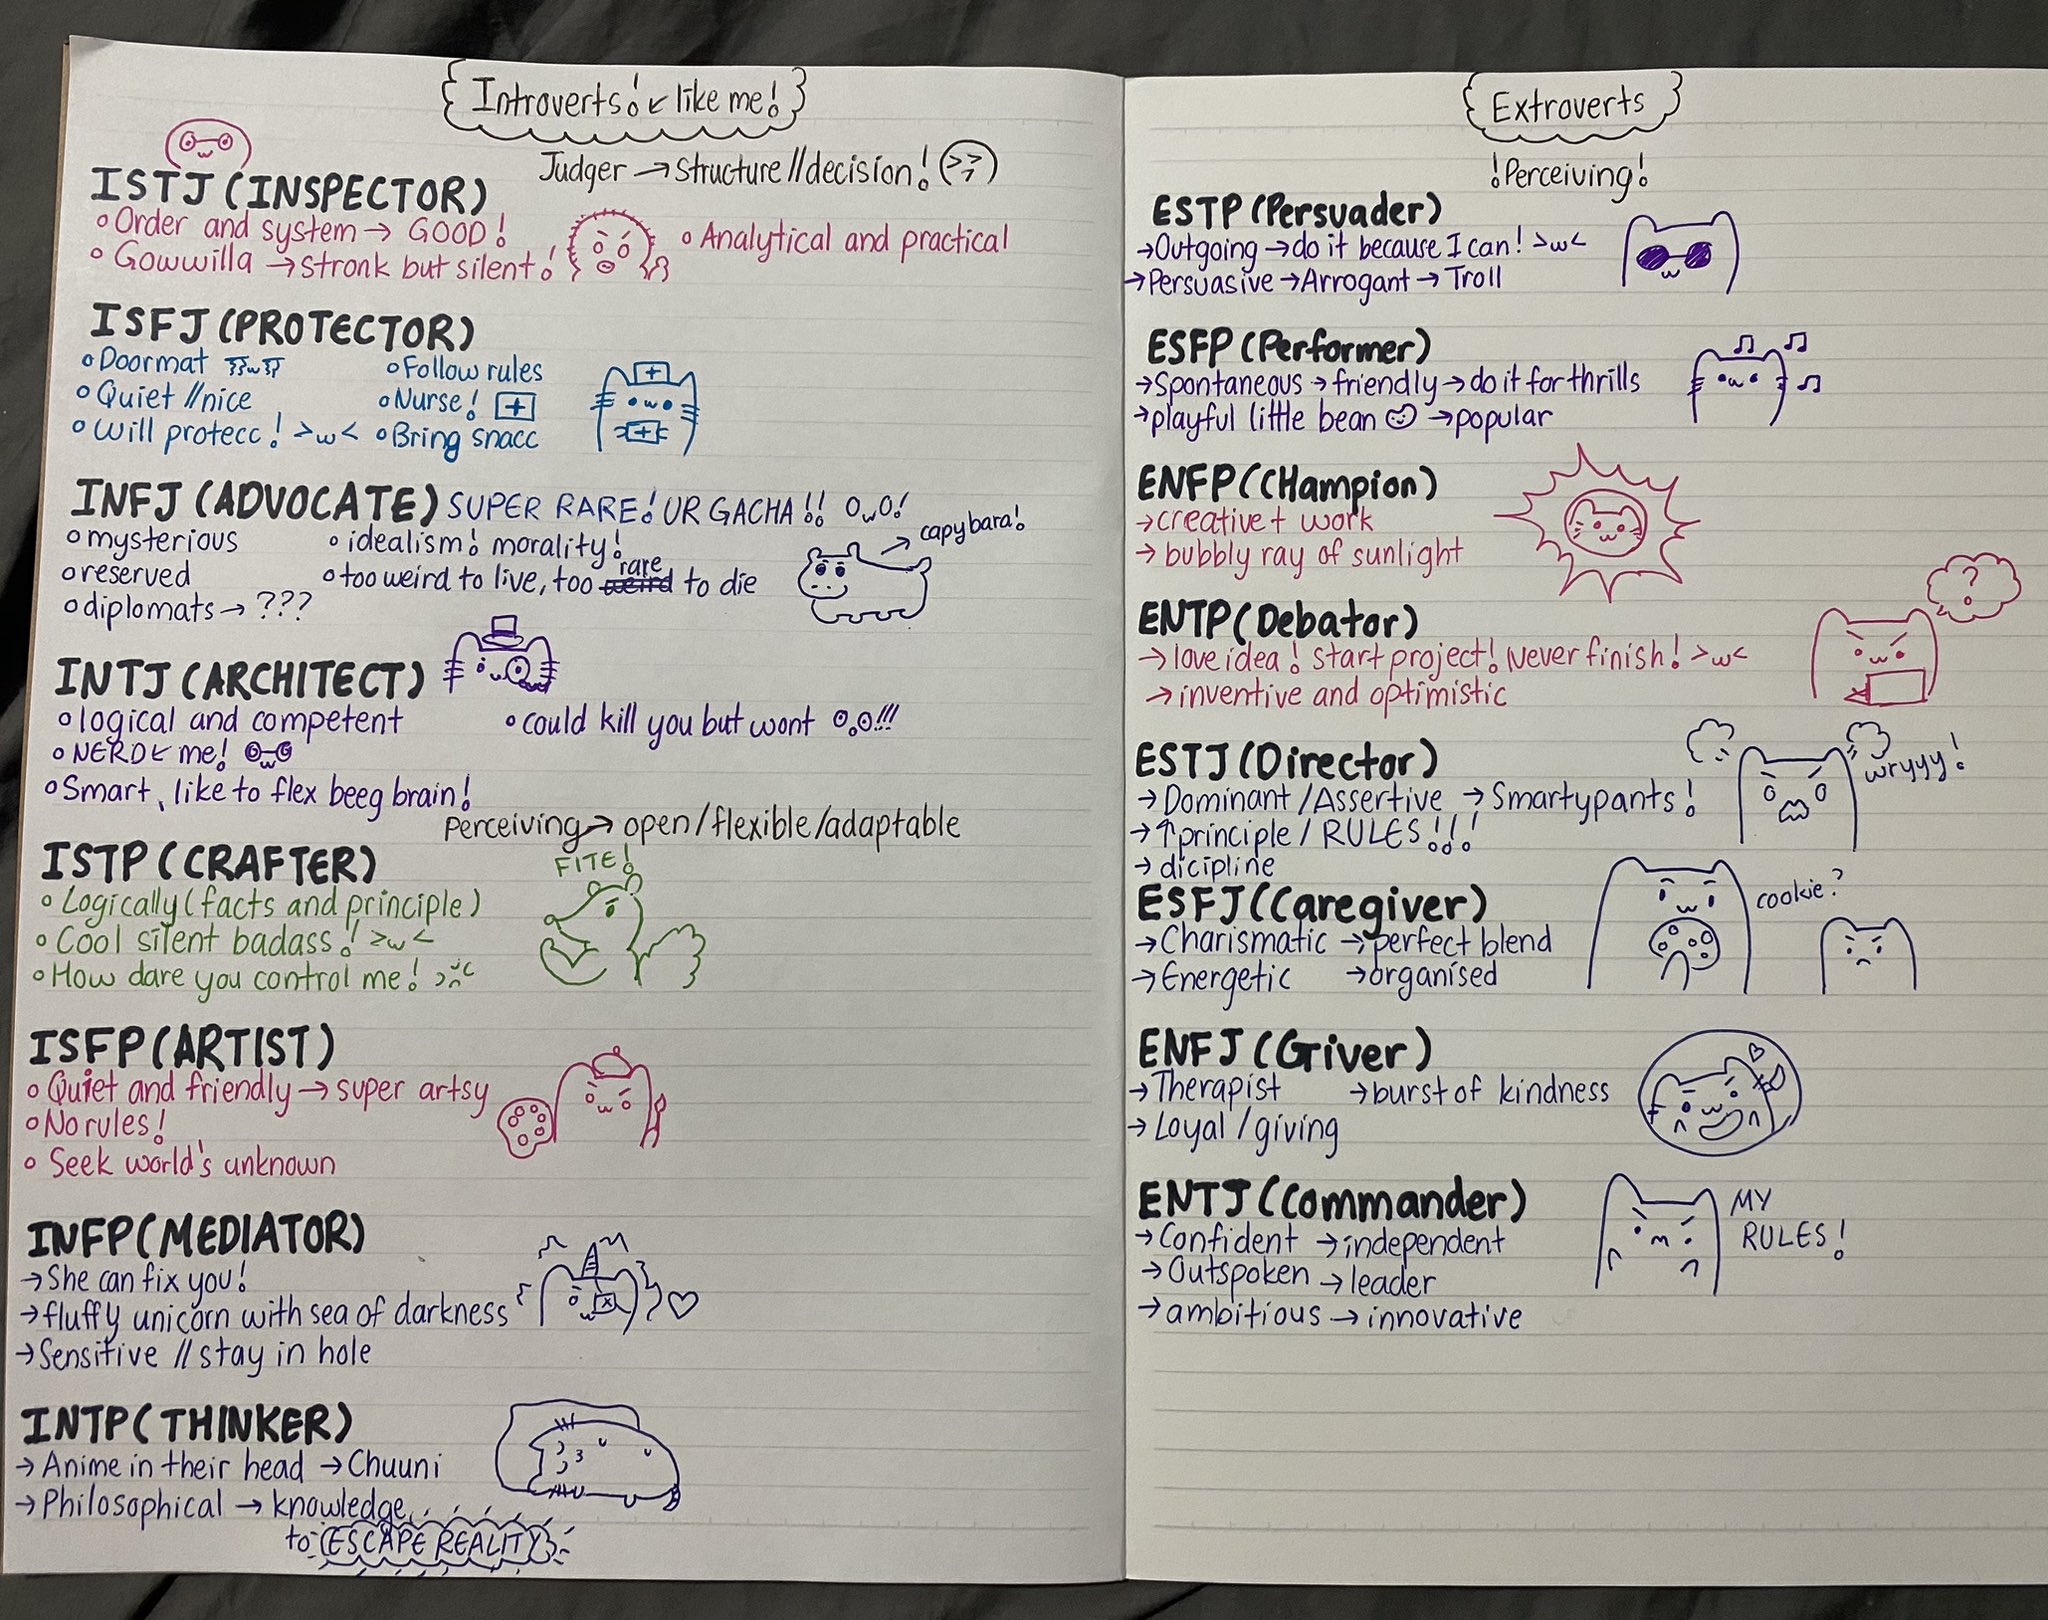 Introverts! ↙ like me!
Judger → structure//decision!
ISTJ (INSPECTOR)
Order and system → GOOD!
Gowwilla → stronk but silent!
Analytical and practical
ISFJ (PROTECTOR)
Doormat
Follow rules
Quiet //nice
Nurse!
Will protecc! >w<
Bring snacc
INFJ (ADVOCATE) SUPER RARE! UR GACHA!! OwO!
capybara!
mysterious
idealism! morality!
reserved
too weird to live, too weird rare to die
diplomats → ???
INTJ (ARCHITECT)
logical and competent
could kill you but wont !!!
NERD ← me!
Smart, like to flex beeg brain!
Perceiving → open/flexible/adaptable
ISTP (CRAFTER)
FITE!
Logically (facts and principle)
Cool silent badass! >w<
How dare you control me!
ISFP (ARTIST)
Quiet and friendly → super artsy
No rules!
Seek world's unknown
INFP (MEDIATOR)
→ She can fix you!
→ fluffy unicorn with sea of darkness
→ Sensitive // stay in hole
INTP (THINKER)
→ Anime in their head → Chuuni
→ Philosophical → knowledge
to ESCAPE REALITY
Extroverts
!Perceiving!
ESTP (Persuader)
→ Outgoing → do it because I can! >w<
→ Persuasive → Arrogant → Troll
ESFP (Performer)
→ Spontaneous → friendly → do it for thrills
→ playful little bean → popular
ENFP (CHampion)
→ creative + work
→ bubbly ray of sunlight
ENTP (Debator)
?
→ love idea! Start project! Never finish! >w<
→ inventive and optimistic
ESTJ (Director)
wryyy!
→ Dominant /Assertive → Smartypants!
→ ↑principle / RULES!!!
→ dicipline
ESFJ (Caregiver)
cookie?
→ Charismatic → perfect blend
→ Energetic → organised
ENFJ (Giver)
→ Therapist → burst of kindness
→ Loyal / giving
ENTJ (Commander)
MY
RULES!
→ Confident → independent
→ Outspoken → leader
→ ambitious → innovative